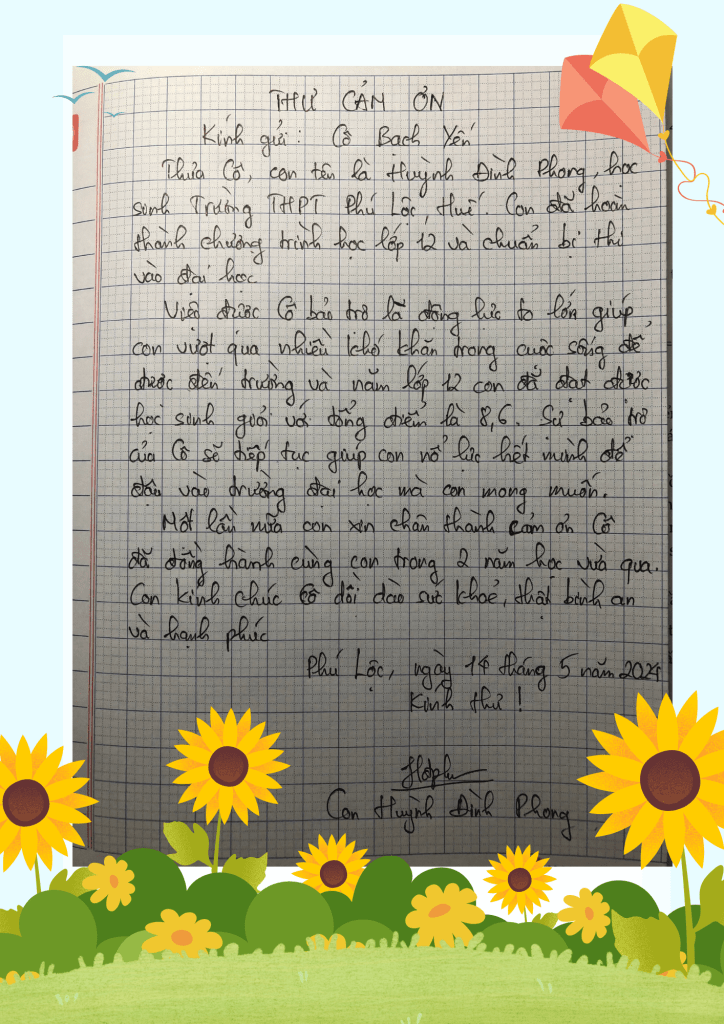 THƯ CẢM ƠN
Kính gửi: Cô Bạch Yến
Thưa Cô, con tên là Huỳnh Đình Phong, học
sinh Trường THPT Phú Lộc, Huế. Con đã hoàn
thành chương trình học lớp 12 và chuẩn bị thi
vào đại học.
Việc được Cô bảo trợ là động lực to lớn giúp
con vượt qua nhiều khó khăn trong cuộc sống để
được đến trường và năm lớp 12 con đã đạt được
học sinh giỏi với tổng điểm là 8,6. Sự bảo trợ
của Cô sẽ tiếp tục giúp con nổ lực hết mình để
đậu vào trường đại học mà con mong muốn.
Một lần nữa con xin chân thành cảm ơn Cô
đã đồng hành cùng con trong 2 năm học vừa qua.
Con kính chúc Cô dồi dào sức khoẻ, thật bình an
và hạnh phúc
Phú Lộc, ngày 14 tháng 5 năm 2024
Kính thư!
Con Huỳnh Đình Phong